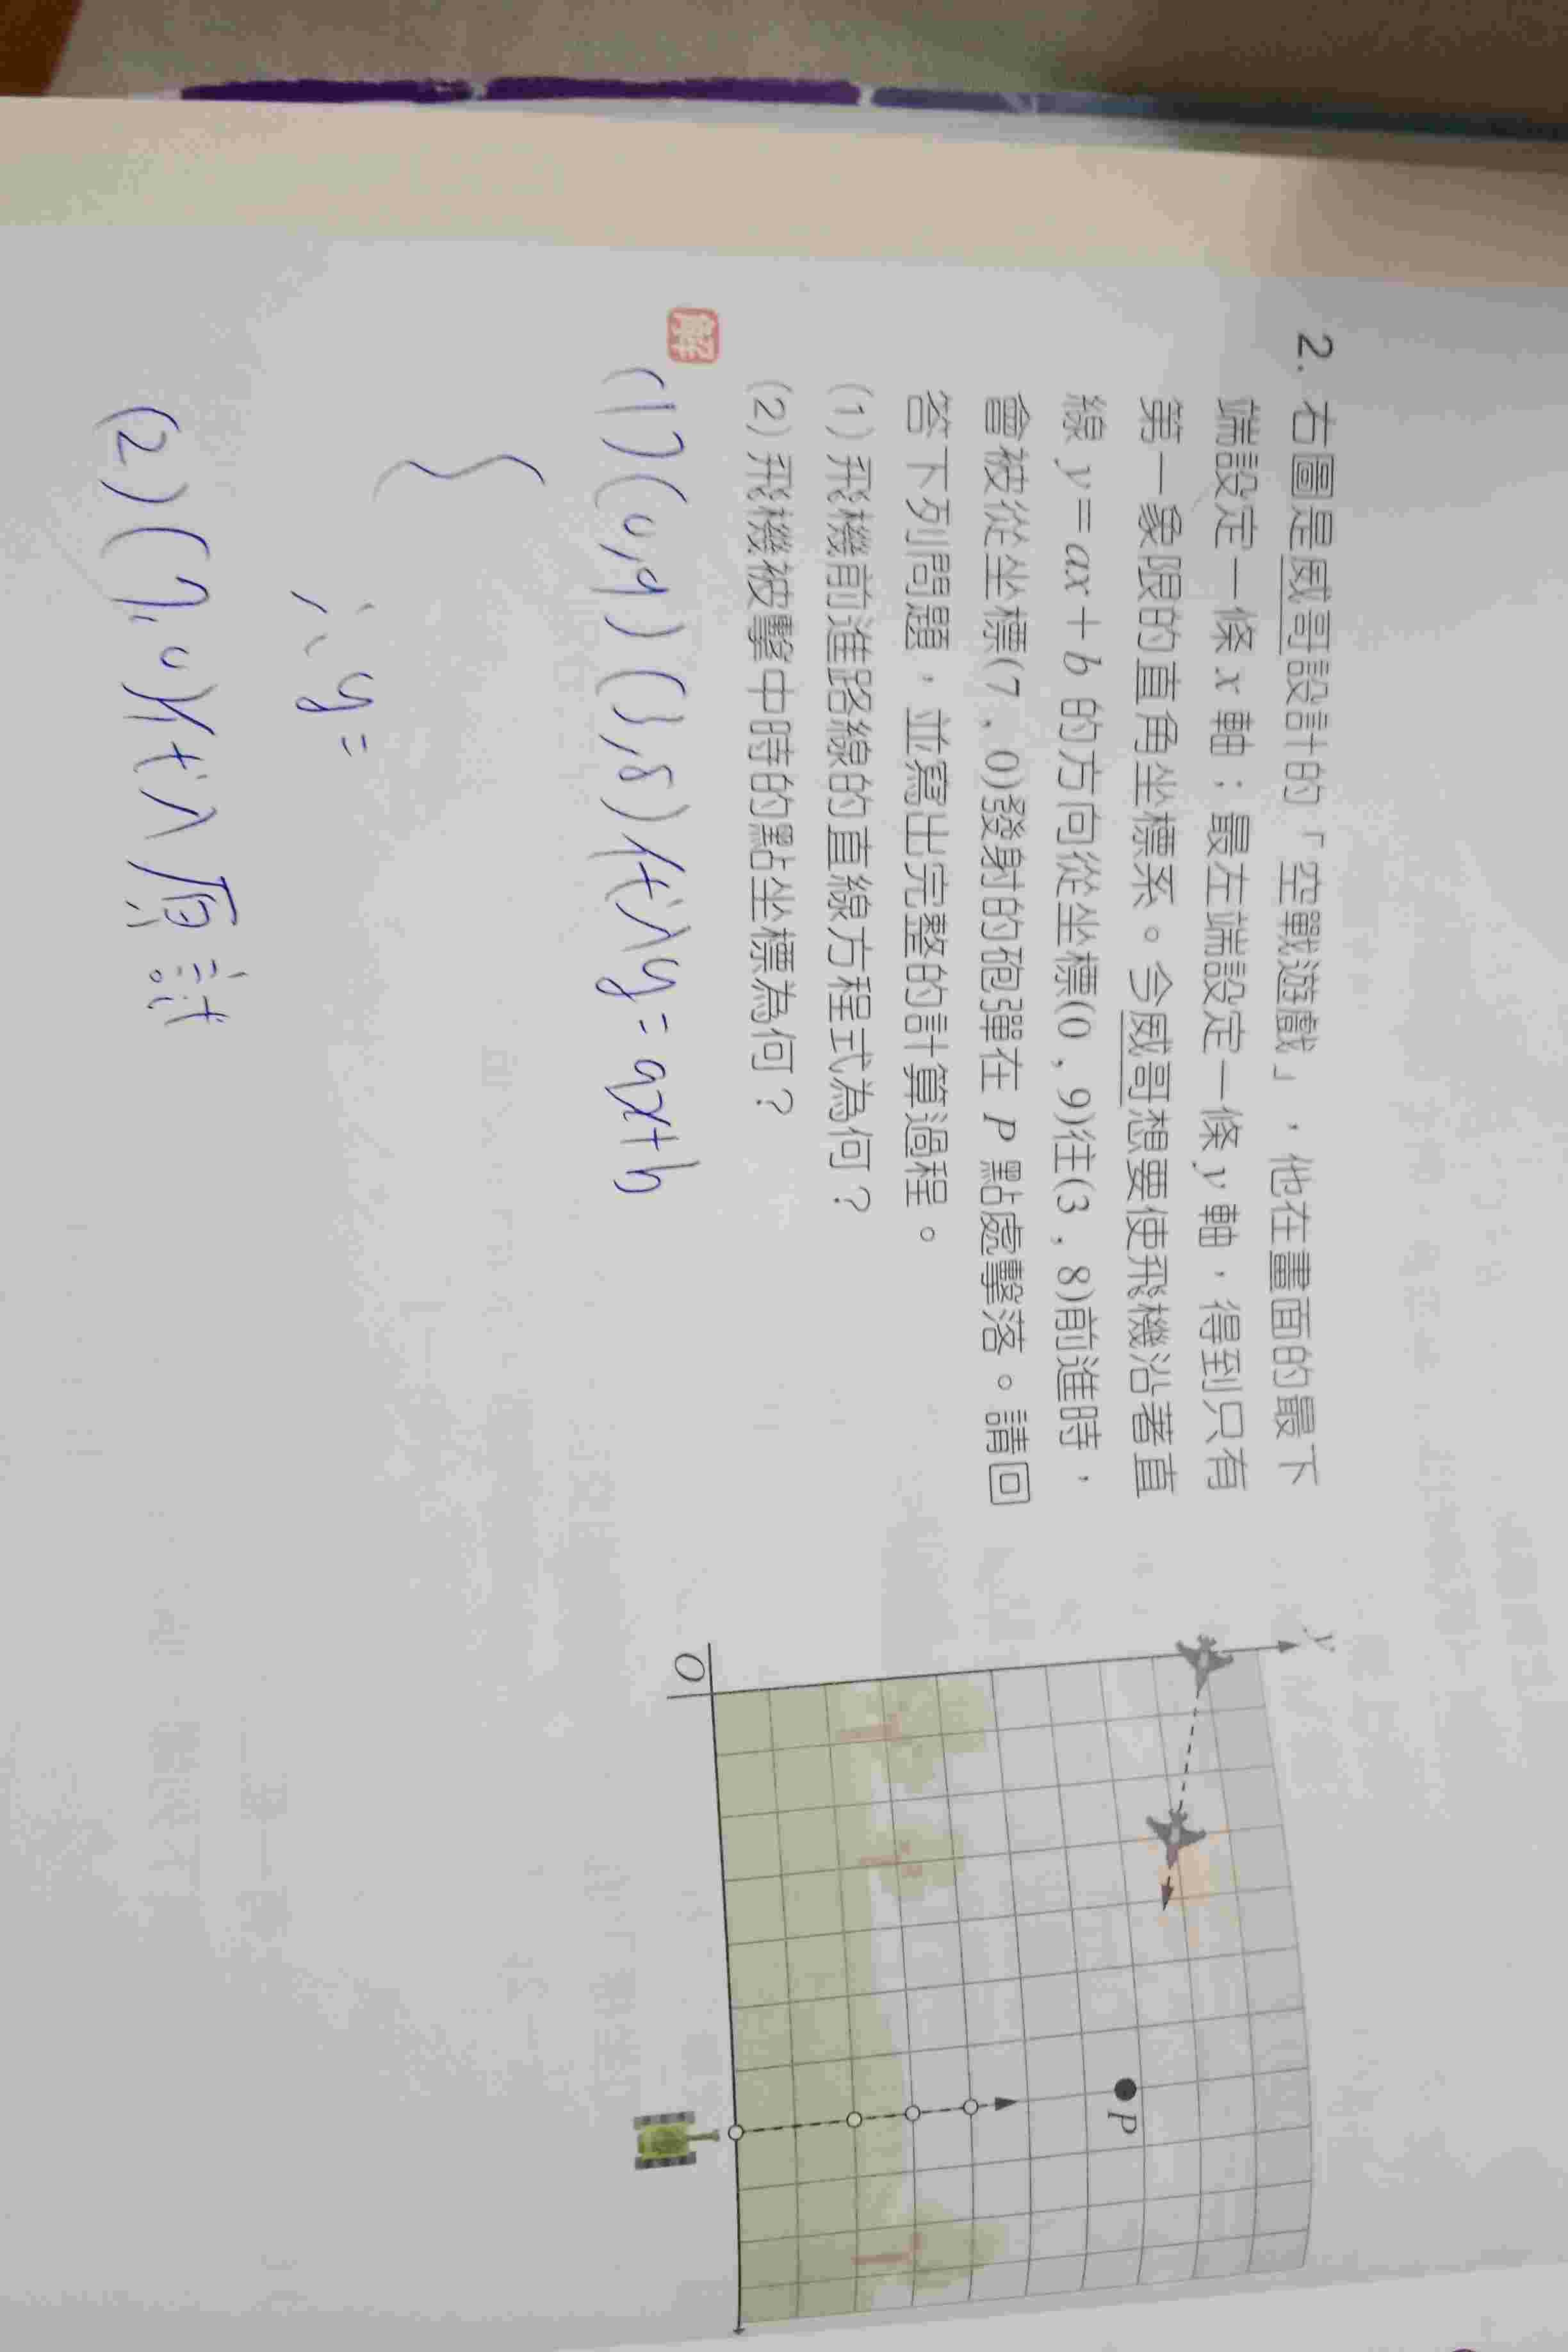 2. 右圖是威哥設計的「空戰遊戲」，他在畫面的最下
端設定一條 x 軸；最左端設定一條 y 軸，得到只有
第一象限的直角坐標系。今威哥想要使飛機沿著直
線 y = ax + b 的方向從坐標(0 , 9)往(3 , 8)前進時，
會被從坐標(7 , 0)發射的砲彈在 P 點處擊落。請回
答下列問題，並寫出完整的計算過程。
(1) 飛機前進路線的直線方程式為何？
(2) 飛機被擊中時的點坐標為何？
解
(1) (0,9) (3,8) 代入 y = ax+b
{
∴ y =
(2) (7,0) 代入 原式
y
O
P